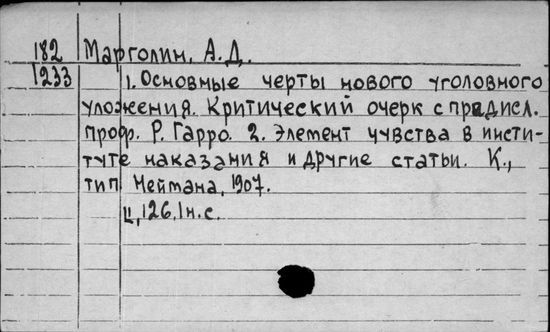 182 Марголин, А.Д.
1233 1. Основные черты нового уголовного
уложения. Критический очерк с предисл.
проф. Р. Гарро. 2. Элемент чувства в инсти-
туте наказания и другие статьи. К.,
тип Неймана, 1907.
II, 126, 1 н. с.